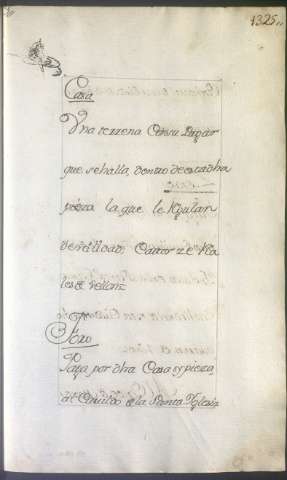 1325..
Casa
Una terrena Cassu Pagar
que se halla, dentro de esta dha
pieza la que le Rgulan
de vtilidad, Catorze Rs
les de vellon=
Foro
Paga por dha Casa y pieza
al Cauildo de la Santa Yglesia